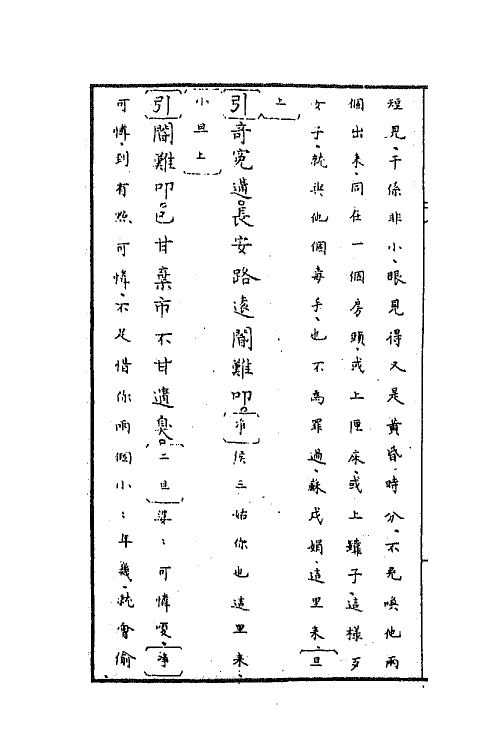 短見、干係非小、眼見得又是黃昏時分、不免喚他兩
個出来、同在一個房頭、或上匣床、或上鐐子、這樣歹
女子、就與他個毒手、也不為罪過、蘇戌娟、這里来、旦
上
引奇冤遘長安路遠閽難叩淨侯三姑你也這里来、
小旦上
引閽難叩包甘棄市不甘遺臭二旦婆：可憐嗄、淨
可憐、到有㸃可憐、不足惜你兩個小：年幾、就會偷